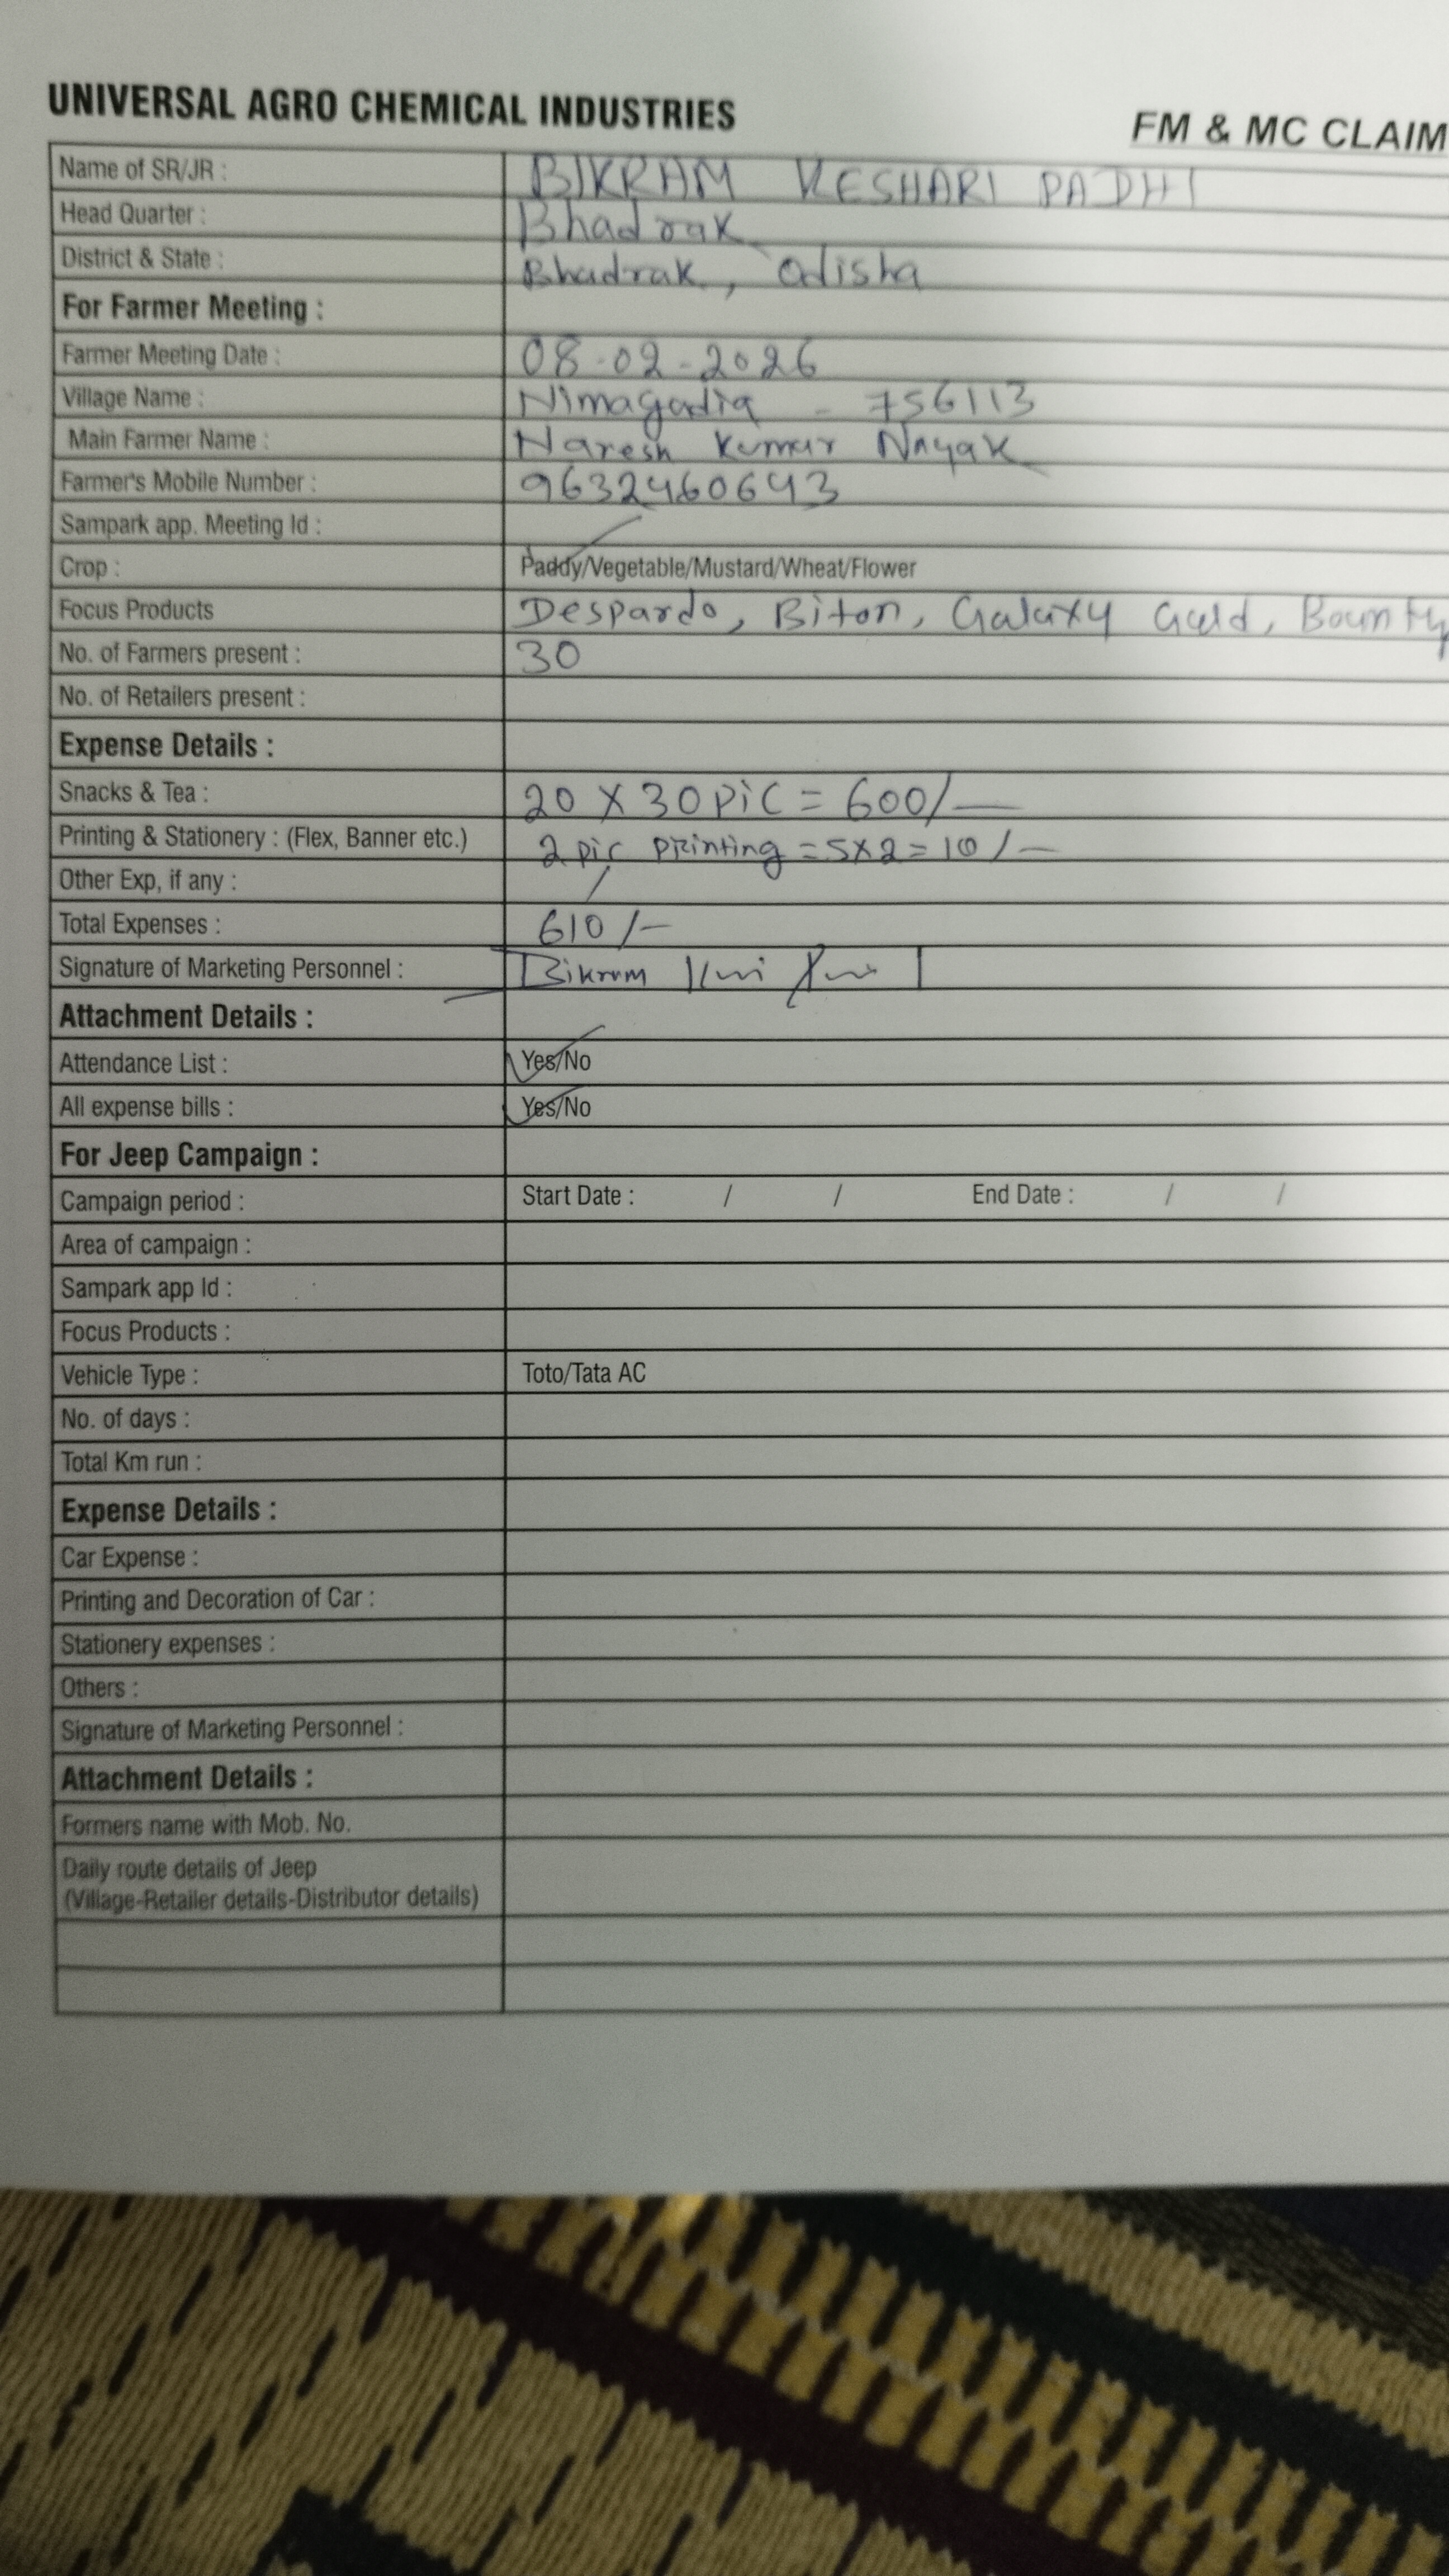 UNIVERSAL AGRO CHEMICAL INDUSTRIES
FM & MC CLAIM
Name of SR/JR : BIKRAM KESHARI PADHI
Head Quarter : Bhadrak
District & State : Bhadrak, Odisha
For Farmer Meeting :
Farmer Meeting Date : 08-02-2026
Village Name : Nimagadia - 756113
Main Farmer Name : Naresh Kumar Nayak
Farmer's Mobile Number : 9632460643
Sampark app. Meeting Id :
Crop : Paddy/Vegetable/Mustard/Wheat/Flower
Focus Products Despardo, Biton, Galaxy Gold, Bounty
No. of Farmers present : 30
No. of Retailers present :
Expense Details :
Snacks & Tea : 20 X 30 PiC = 600/—
Printing & Stationery : (Flex, Banner etc.) 2 pic printing = 5x2 = 10/—
Other Exp, if any : /
Total Expenses : 610/-
Signature of Marketing Personnel : Bikram
Attachment Details :
Attendance List : Yes/No
All expense bills : Yes/No
For Jeep Campaign :
Campaign period : Start Date : / / End Date : / /
Area of campaign :
Sampark app Id :
Focus Products :
Vehicle Type : Toto/Tata AC
No. of days :
Total Km run :
Expense Details :
Car Expense :
Printing and Decoration of Car :
Stationery expenses :
Others :
Signature of Marketing Personnel :
Attachment Details :
Formers name with Mob. No.
Daily route details of Jeep
(Village-Retailer details-Distributor details)